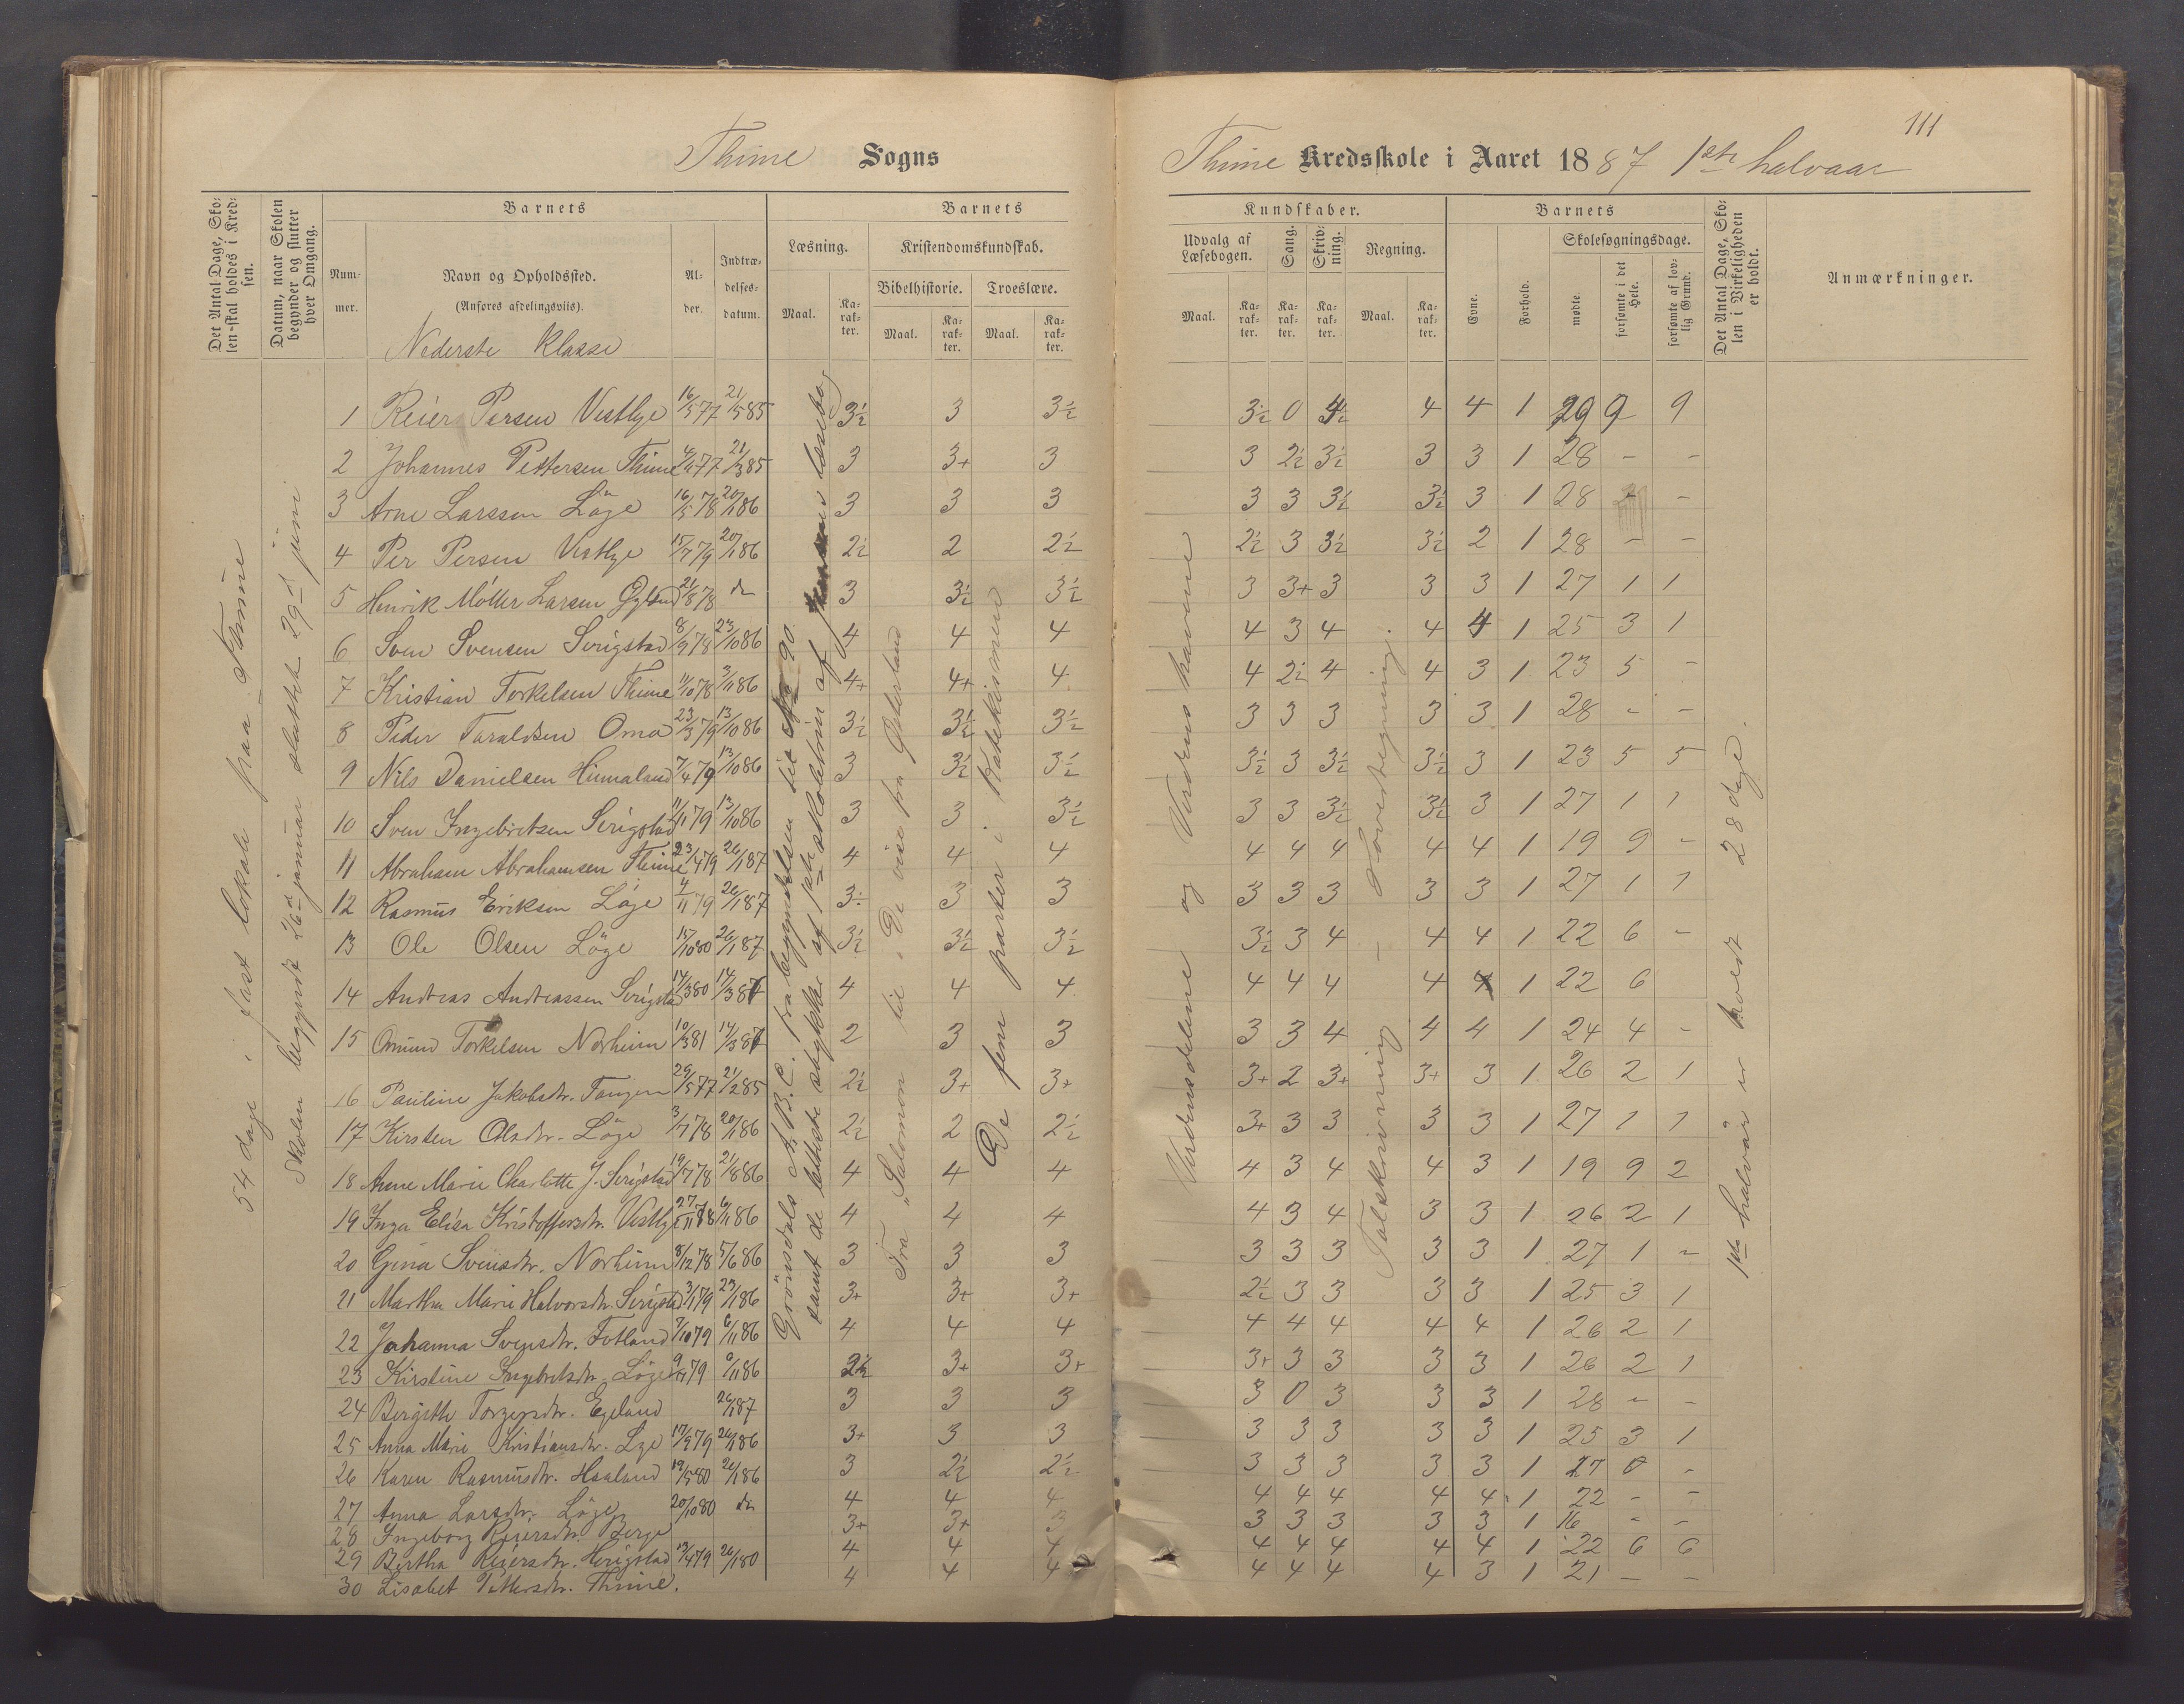 111
Thime Sogns
Thime Kredsskole i Aaret 1887 1ste halvaar
Det Antal Dage, Skolen skal holdes i Kredsen.
Datum, naar Skolen begynder og slutter hver Omgang.
Barnets
Nummer.
Navn og Opholdssted.
(Anføres afdelingsviis).
Alder.
Indtrædelsesdatum.
Barnets
Læsning.
Maal.
Karakter.
Kristendomskundskab.
Bibelhistorie.
Maal.
Karakter.
Troeslære.
Maal.
Karakter.
Kundskaber.
Udvalg af Læsebogen.
Maal.
Karakter.
Sang.
Karakter.
Skrivning.
Karakter.
Regning.
Maal.
Karakter.
Barnets
Evne.
Forhold.
Skolesøgningsdage.
mødte.
forsømte i det Hele.
forsømte af lovlig Grund.
Det Antal Dage, Skolen i Virkeligheden er holdt.
Anmærkninger.
Nederste Klasse
54 dage i fast lokale paa Thime
Skolen begyndt 26d januar sluttet 29d juni
Grönsdals A.B.C. fra begyndelsen til 90.
samt de letteste stykker af 1ste skoletrin af læsebog
Fra "Salomon" til "De vise fra Østerland
De fem parter i Katekismen
Verdensdelene og Verdens havene
Talskrivning – Hovedregning.
1ste halvår er holdt 28 dage.
1 Reier Persen Vestlye 16/5 77 21/5 85 3½ 3 3½ 3½ 0 4 4 1 29 9 9
2 Johannes Pettersen Thime 21/3 85 3 3+ 3 3 2½ 3½ 3 3 1 28 - -
3 Arne Larssen Löge 16/5 78 20/1 86 3 3 3 3 3 3½ 3½ 3 1 28 - -
4 Per Persen Vestlye 15/7 79 20/1 86 2½ 2 2½ 2½ 3 3½ 3½ 2 1 28 - -
5 Henrik Möller Larsen 21/8 78 do 3 3½ 3½ 3 3+ 3 3 3 1 27 1 1
6 Sven Svensen Serigstad 8/9 78 23/10 86 4 4 4 4 3 4 4 4 1 25 3 1
7 Kristian Torkelsen Thime 11/10 78 3/11 86 4+ 4+ 4 4 2½ 4 4 3 1 23 5 -
8 Peder Taraldsen Omo 23/3 79 13/10 86 3½ 3½ 3½ 3 3 3 3 3 1 28 - -
9 Nils Danielsen Hinnaland 7/4 79 13/10 86 3 3½ 3½ 3½ 3 3½ 3½ 3 1 23 5 5
10 Sven Ingebretsen Serigstad 11/11 79 13/10 86 3 3 3½ 3 3 3½ 3½ 3 1 27 1 1
11 Abraham Abrahamsen Thime 23/4 79 26/1 87 4 4 4 4 4 4 4 4 1 19 9 -
12 Rasmus Eriksen Löge 4/11 79 26/1 87 3 3 3 3 3 3 3 1 27 1 1
13 Ole Olsen Löge 15/10 80 26/1 87 3½ 3½ 3½ 3½ 3 4 4 4 1 22 6 -
14 Andreas Andreassen Serigstad 14/3 80 14/3 87 4 4 4 4 4 4 4 4 1 22 6
15 Omund Torkelsen Norheim 10/3 81 14/3 87 2 3 3 3 3 4 4 4 1 24 4 -
16 Pauline Jakobsdtr. Tangen 29/5 77 21/2 85 2½ 3+ 3+ 3+ 2 3+ 3+ 3 1 26 2 1
17 Kirsten Olsdtr. Löge 3/7 78 20/1 86 2½ 2 2½ 3+ 3 3 3 3 1 27 1 1
18 Anne Marie Charlotte J. Serigstad 19/7 78 21/8 86 4 4 4 4 3 4 4 3 1 19 9 2
19 Inga Elisa Kristoffersdtr. Vestlye 27/11 78 6/11 86 4 4 4 4 3 4 3 3 1 26 2 1
20 Gina Svensdtr. Norheim 8/12 78 5/6 86 3 3 3 3 3 3 3 3 1 27 1 -
21 Martha Marie Halvorsdtr. Serigstad 3/1 79 23/1 86 3+ 3+ 3+ 2½ 3 3 3 3 1 25 3 1
22 Johanna Svensdtr. Fotland 7/10 79 6/11 86 4 4 4 4 4 4 4 4 1 26 2 1
23 Kirstine Ingebretsdtr. Löge 6/11 86 3+ 3+ 3+ 3 3 3 3 1 26 2 1
24 Bergitte Torgersdtr. Egeland 26/1 87 3 3 3 3 0 3 3 3 1 28 - -
25 Anna Marie Kristiansdtr. Lye 17/9 79 26/1 86 3+ 3 3 3 3 3 3 3 1 25 3 1
26 Karen Rasmusdtr. Haaland 19/5 80 26/1 86 3 2½ 2½ 3 3 3 3 3 1 27 0 -
27 Anna Larsdtr. Löge 20/10 80 do 4 4 4 4 4 4 4 4 1 22 - -
28 Ingeborg Reiersdtr. 3+ 3+ 3 3 3 3 3 3 1 16 - -
29 Bertha Reiersdtr. Herigstad 13/4 79 26/1 80 4 4 4 4 4 4 4 4 1 22 6 6
30 Lisabet Pettersdtr. Thime. 4 4 4 4 4 4 4 3 1 21 - -